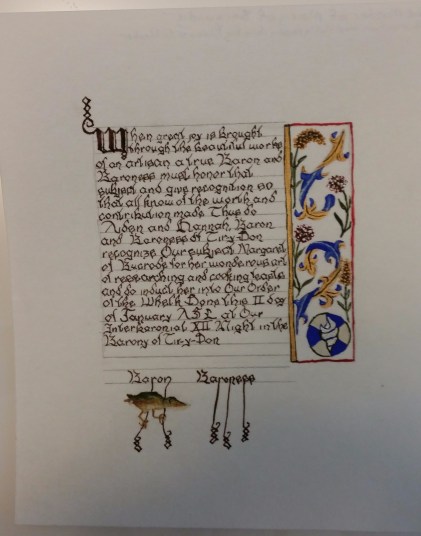 When great joy is Brought
through the beautiful works
of an artisan a true Baron and
Baroness must honor that
subject and give recognition so
that all know of the worth and
contribution made Thus do
Aiden and Hannah, Baron
and Baroness of Tir-y-Don
recognize Our subject Margaret
of for her wonderous art
of researching and cooking feasts
and do induct her into Our Order
of the Whelk Done this II day
of January at Our
Interbaronial XII Night in the
Barony of Tir-y-Don
Baron Baroness